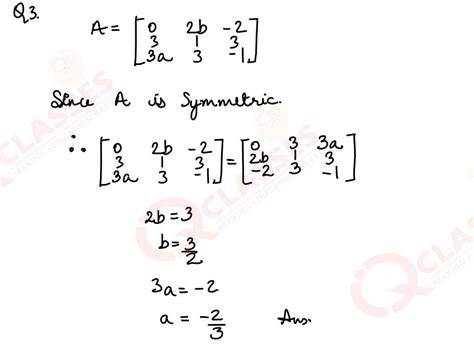 Q3.
A = [ 0 2b -2
3 1 3
3a 3 -1 ]
Since A is Symmetric.
∴ [ 0 2b -2
3 1 3
3a 3 -1 ] = [ 0 3 3a
2b 1 3
-2 3 -1 ]
2b = 3
b = 3/2
3a = -2
a = -2/3 Ans.
CLASSES